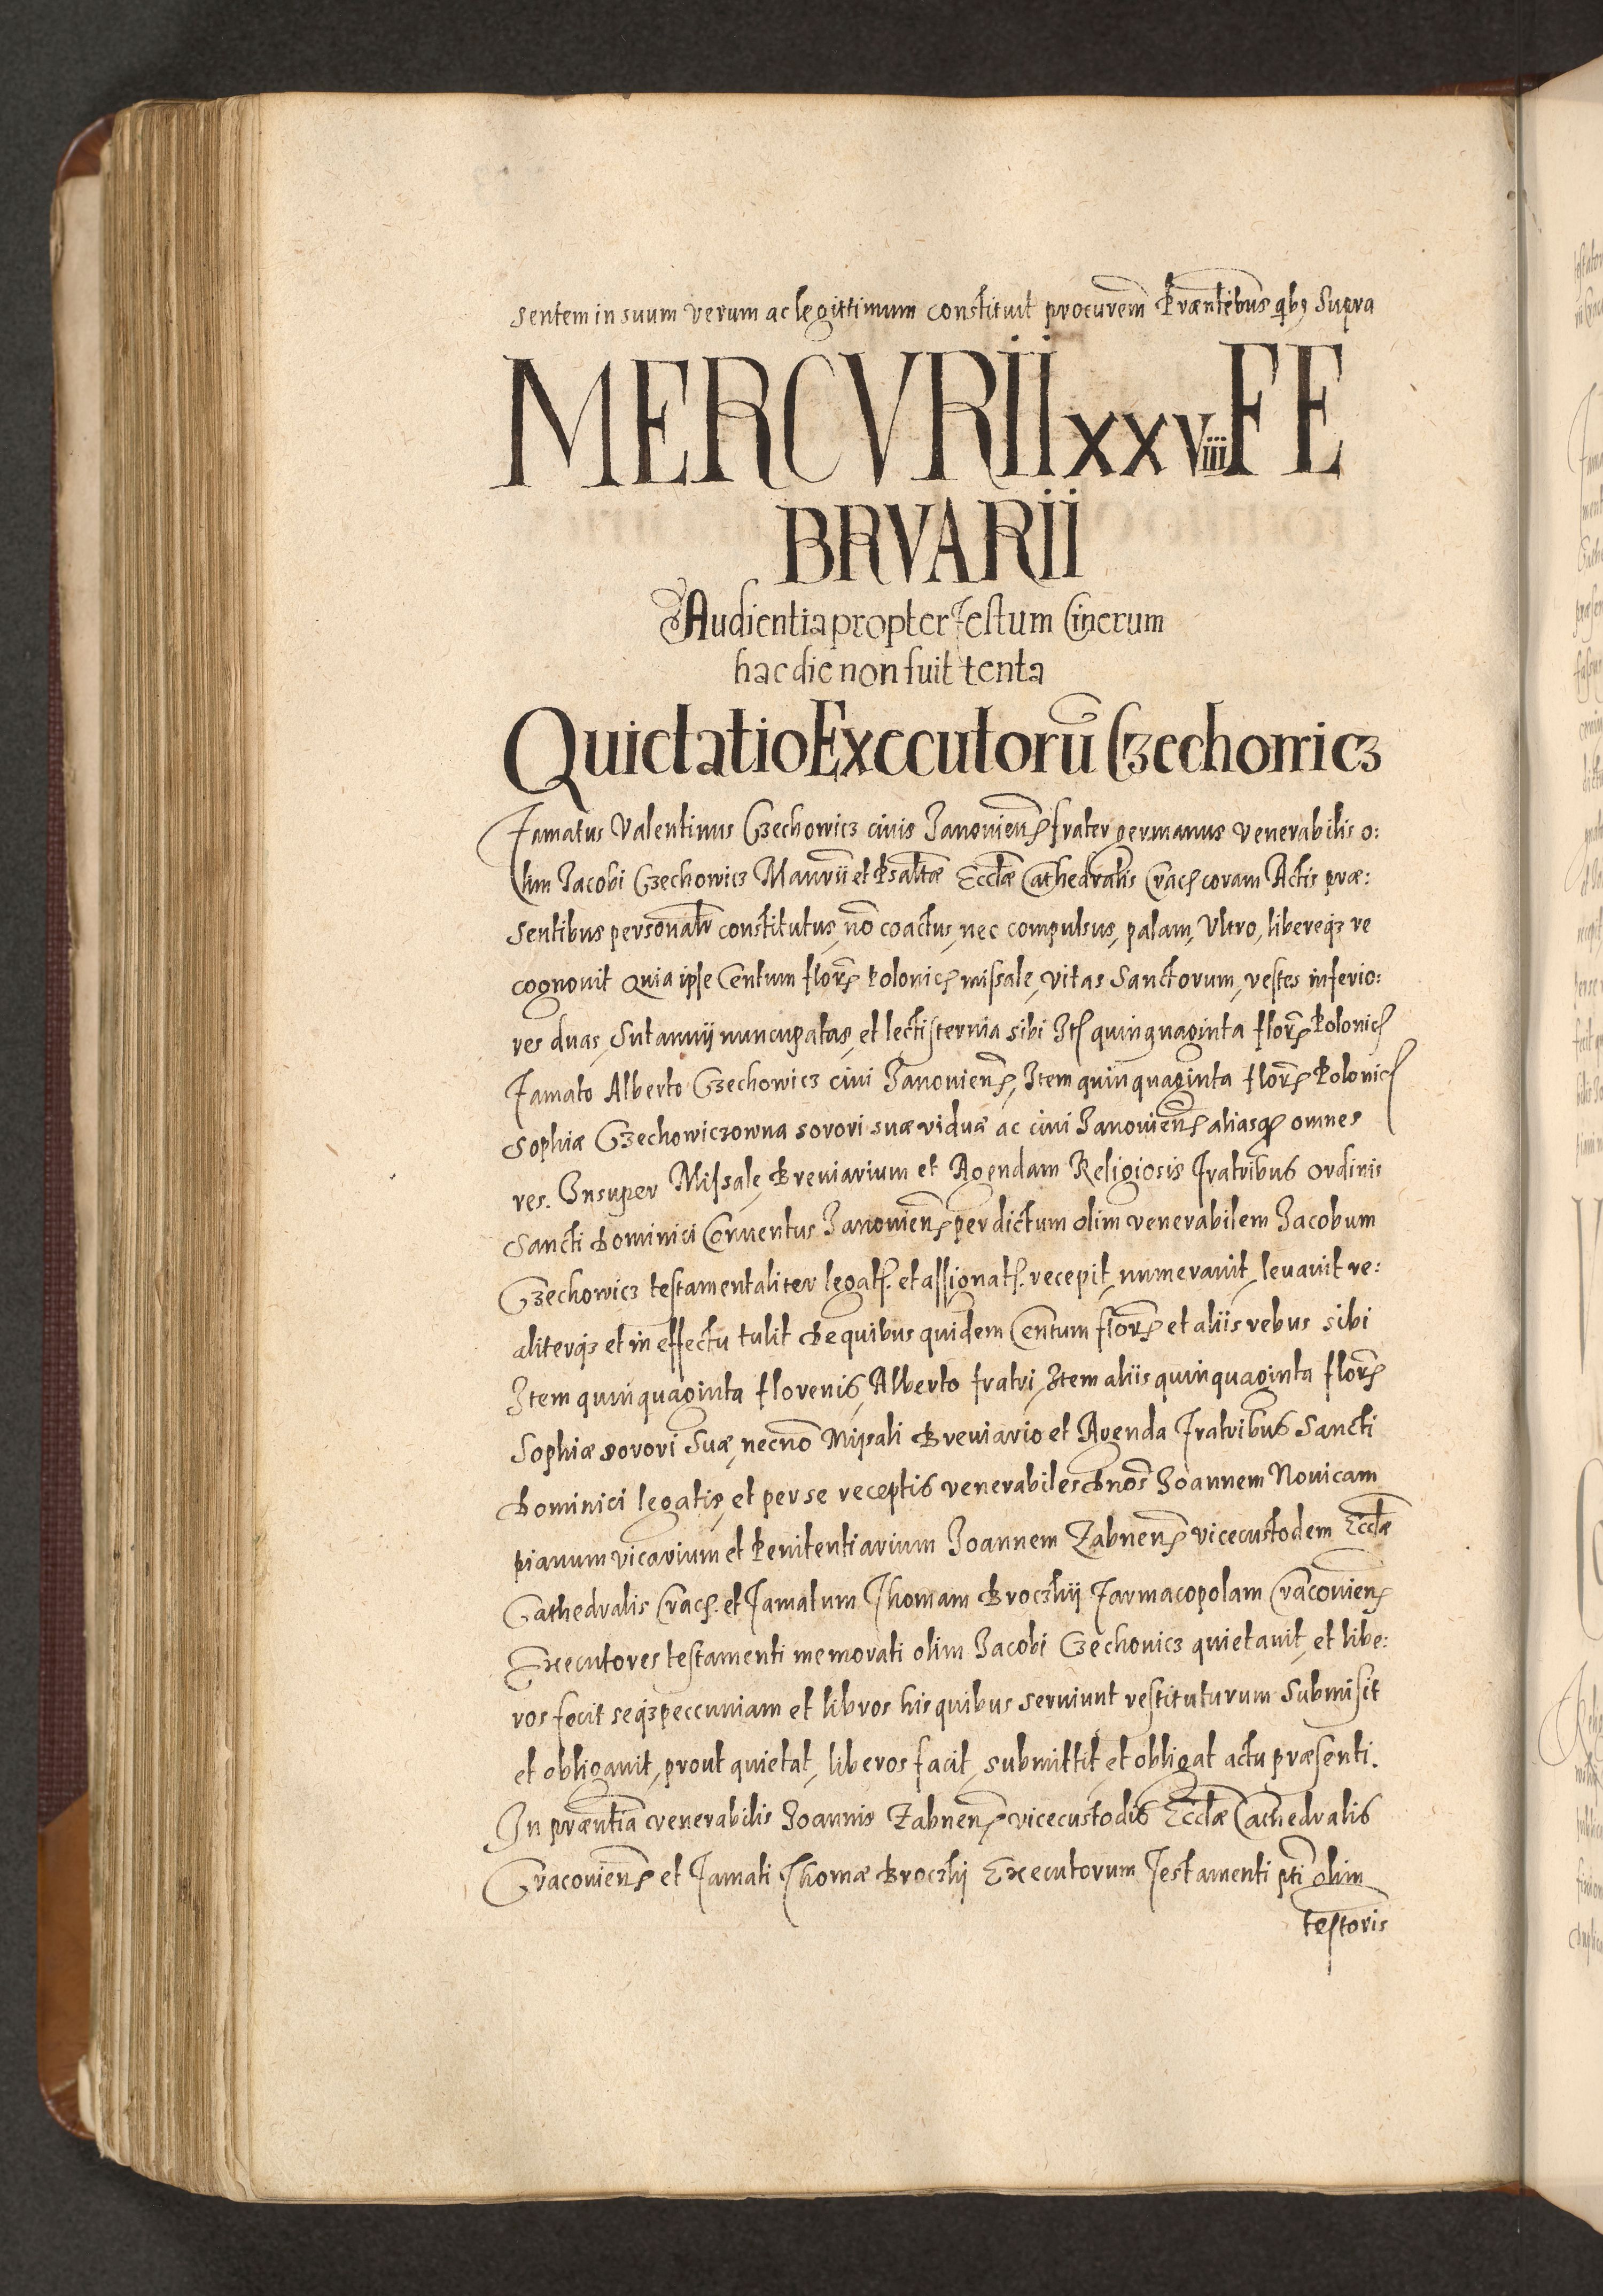 sentem in suum verum ac legittimum constituit procurem̄ Præntibus qb9 supra
MERCVRII xxviii FE
BRVARII
Audientia propter Festum Cinerum
hac die non fuit tenta
Quietatio Executorū Czechowicz
Famatus Valentinus Czechowicz civis Janovien̄ frater germanus venerabilis o:
lim Jacobi Czechowicz Manrii et Psaltæ Eccłæ Cathedralis Crac̄ coram Actis præ:
sentibus personalr̄ constitutus, nō coactus, nec compulsus, palam, Vltro, libereq3 re
cognovit Quia ipse Centum flor̄ Polonic̄ missale, vitas Sanctorum, vestes inferio:
res duas, Sutannij nuncupatas, et lectisternia sibi It̄ quinquaginta flor̄ Polonic̄
Famato Alberto Czechowicz civi Janovien̄, Item quinquaginta flor̄ Polonic̄
Sophiæ Czechowiczowna sorori suæ viduæ ac civi Janovien̄ aliasq̄ omnes
res. Insuper Missale, Breviarium et Agendam Religiosis Fratribus ordinis
Sancti Dominici Conventus Janovien̄ per dictum olim venerabilem Jacobum
Czechowicz testamentaliter legat̄. et assignat̄. recepit, numeravit, levavit re:
aliterq3 et in effectu tulit De quibus quidem Centum flor̄ et aliis rebus sibi
Item quinquaginta florenis, Alberto fratri, Item aliis quinquaginta flor̄
Sophiæ sorori Suæ, necnō Missali Breviario et Agenda Fratribus Sancti
Dominici legatis, et per se receptis venerabiles Dnōs Joannem Novicam
pianum vicarium et Penitentiarium Joannem Zabnen̄ vicecustodem Eccłæ
Cathedralis Crac̄. et Famatum Thomam Broczkij Farmacopolam Cracovien̄
Executores testamenti memorati olim Jacobi Czechovicz quietavit, et libe:
ros fecit seq3 peccuniam et libros his quibus serviunt restituturum Submisit
et obligavit, prout quietat, liberos facit, submittit, et obligat actu præsenti.
In præntiā venerabilis Joannis Zabnen̄ vicecustodis Eccłæ Cathedralis
Cracovien̄ et Famati Thomæ Broczkij Executorum Testamenti pti olim
testoris